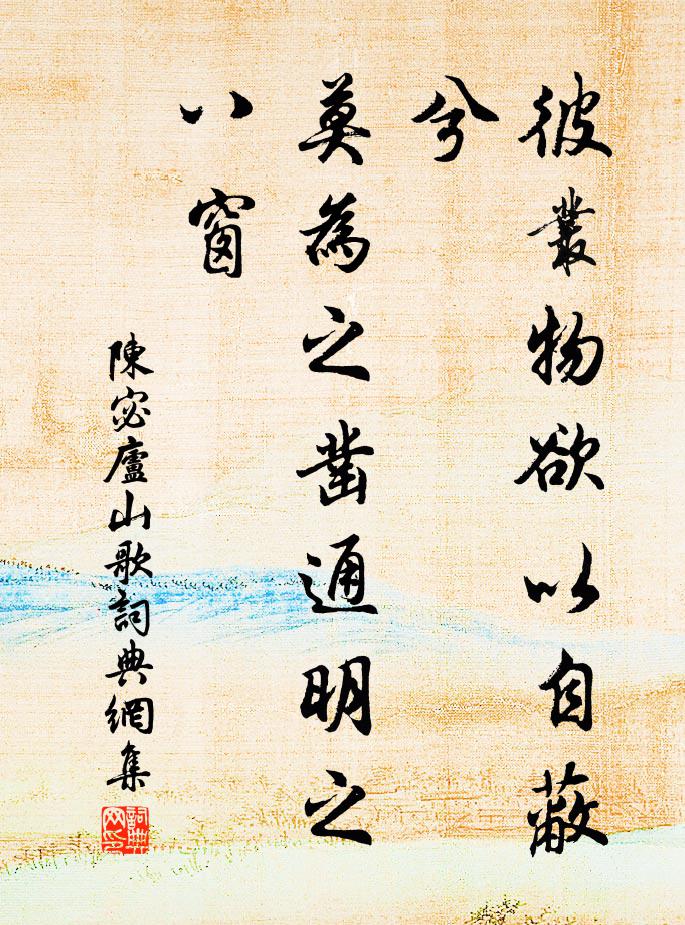 彼叢物欲以自蔽
兮
莫為之鑿通明之
八窗
陳宓廬山歌詞典網集
詞典网印